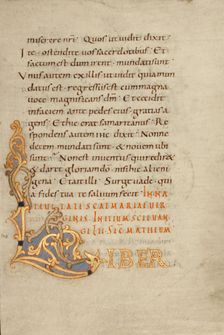 miserere nri · Quos ut uidit dixit
Ite ostendite uos sacerdotibus · Et
factum est dum irent mundati sunt
Unus autem ex illis ut uidit quia mun
datus est · regressus est cum magna
uoce magnificans dm · Et cecidit
in faciem ante pedes eius gratias a
gens · Et hic erat samaritanus · Re
spondens autem ihs dixit · Nonne
decem mundati sunt & nouem ubi
sunt · Non est inuentus qui rediret
& daret gloriam do nisi hic alieni
gena · Et ait illi · Surge uade qui
a fides tua te saluum fecit · IN NA
UIRGINIS · INITIUM SCI EUAN
GELII SEC MATHEUM
LIBER